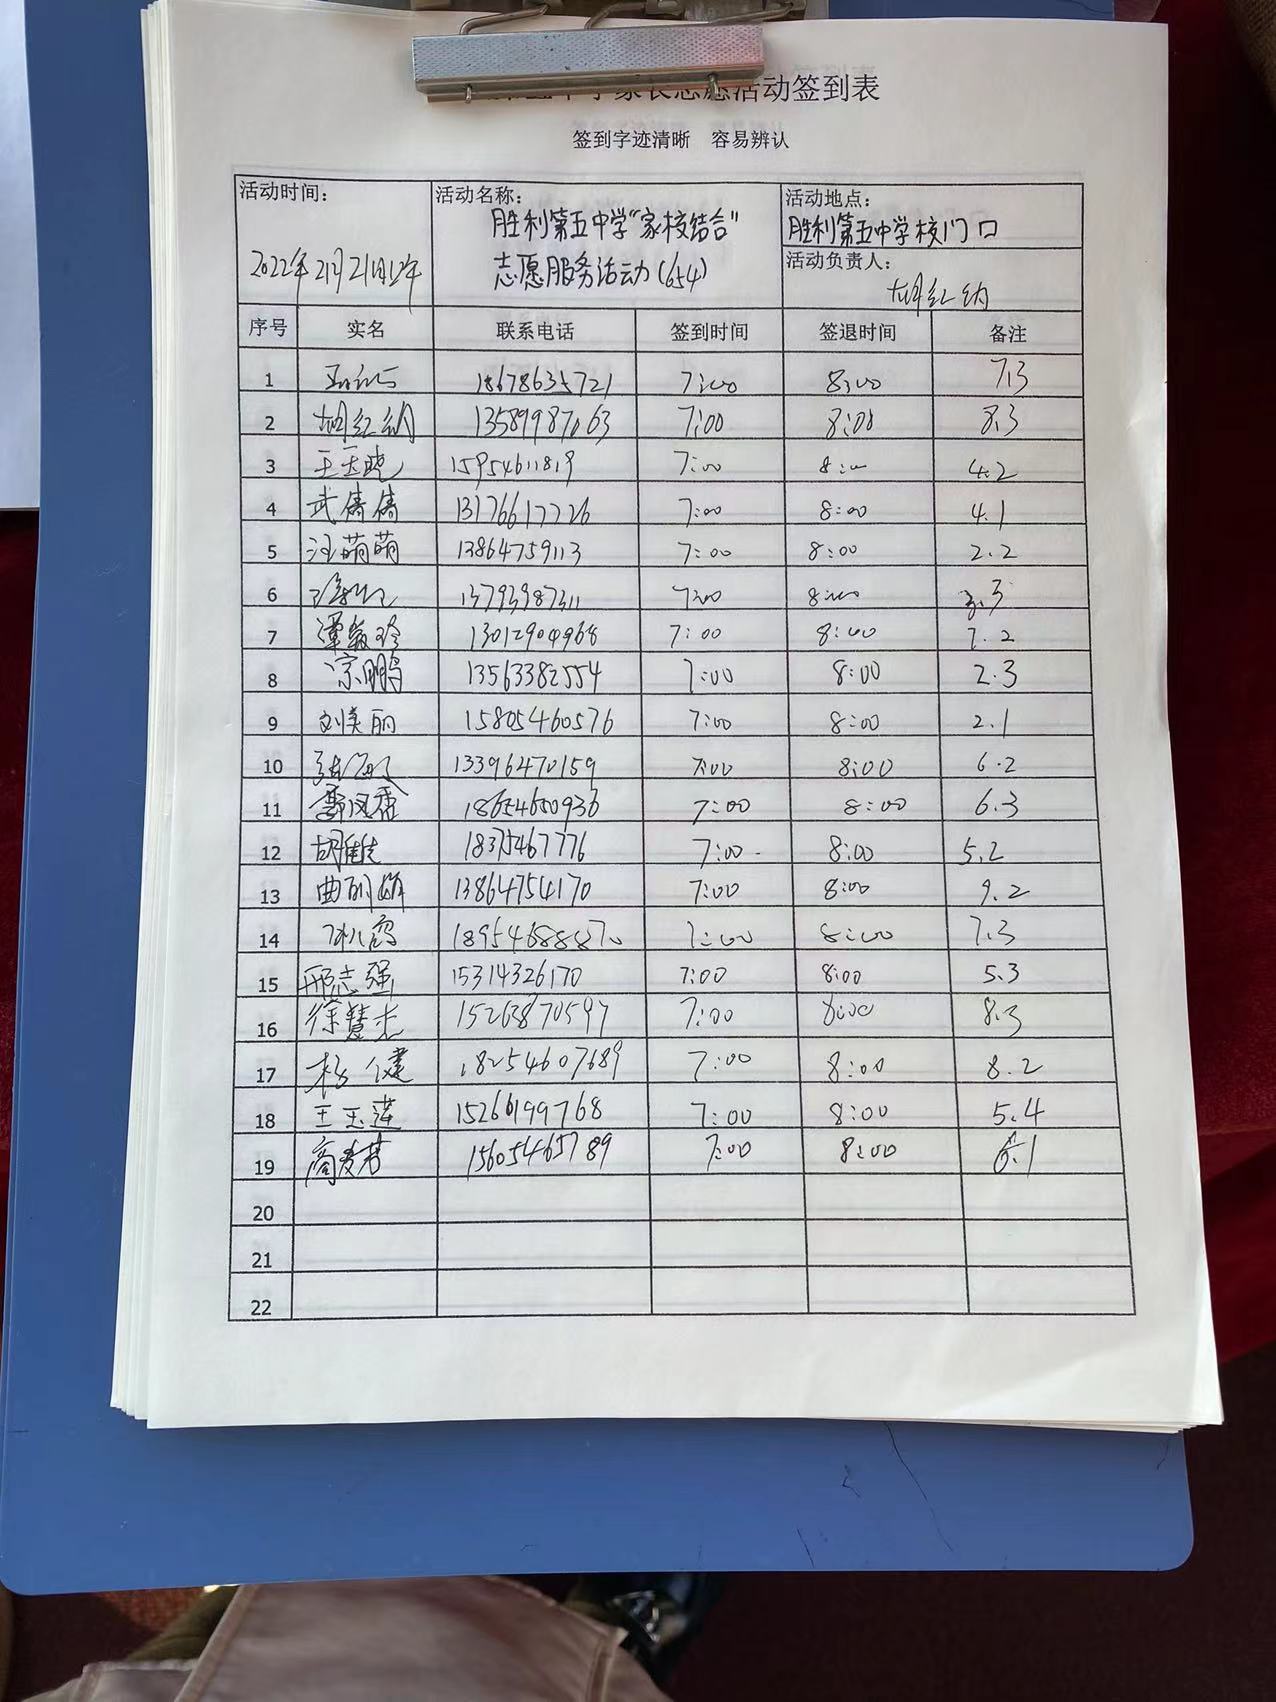 家长志愿活动签到表
签到字迹清晰 容易辨认
活动时间: 活动名称: 活动地点:
胜利第五中学"家校结合" 胜利第五中学校门口
2022年2月21日 志愿服务活动(654) 活动负责人:
胡红纳
序号 实名 联系电话 签到时间 签退时间 备注
1 18678635721 7:00 8:00 7.3
2 胡红纳 13589987063 7:00 8:00 8.3
3 王玉晓 15954611819 7:00 8:00 4.2
4 武倩倩 13176617726 7:00 8:00 4.1
5 汪萌萌 13864759113 7:00 8:00 2.2
6 13793987311 7:00 8:00 3.3
7 13012904968 7:00 8:00 7.2
8 宗鹏 13563382554 7:00 8:00 2.3
9 刘美丽 15805460576 7:00 8:00 2.1
10 13396470159 7:00 8:00 6.2
11 郭凤香 18654650936 7:00 8:00 6.3
12 18375467776 7:00 8:00 5.2
13 13864754170 7:00 8:00 9.2
14 18954688870 7:00 8:00 7.3
15 邢志强 15314326170 7:00 8:00 5.3
16 徐慧杰 15263870597 7:00 8:00 8.3
17 杨健 18254607689 7:00 8:00 8.2
18 王玉莲 15266199768 7:00 8:00 5.4
19 15605465789 7:00 8:00 6.1
20
21
22